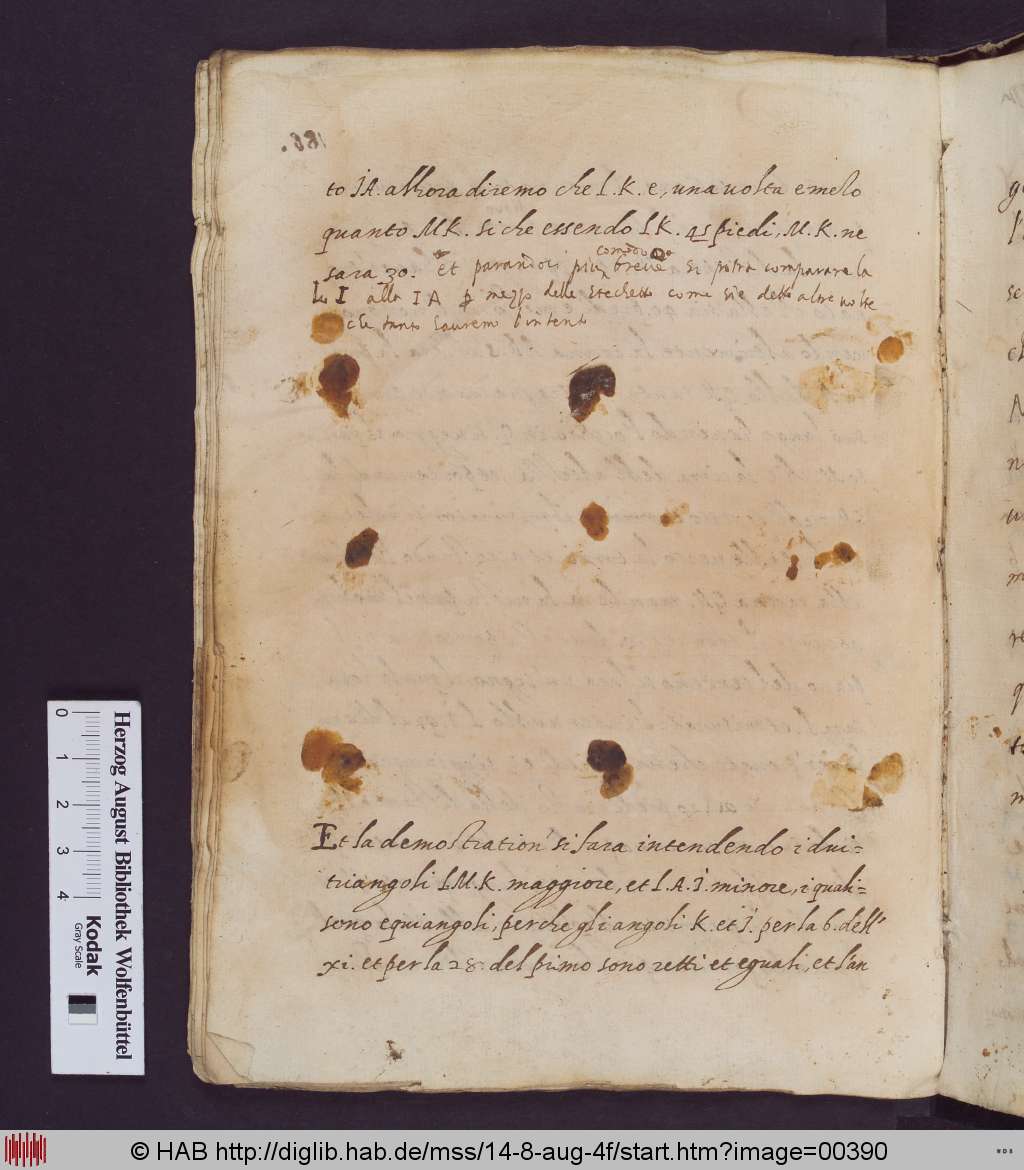 to İA. allhora diremo che I. K. e, una uolta e mezo
quanto M.K. si che essendo I.K. 45 piedi, M. K. ne
sara 30. Et parandoci piu comodo breue si potra comparare la
L I alla I A p mezzo delle stechetto come si è detto altre uolte
che tanto hauremo l'intento
Et la demostration' si fara intendendo i dui=
triangoli I.M.K. maggiore, et I.A.İ. minore, i quali=
sono equiangoli, perche gli angoli K. et İ. per la 6. dell'
xi. et per la 28. del primo sono retti et eguali, et l'an
186.
Herzog August Bibliothek Wolfenbüttel
0 1 2 3 4
Kodak
Gray Scale
© HAB http://diglib.hab.de/mss/14-8-aug-4f/start.htm?image=00390